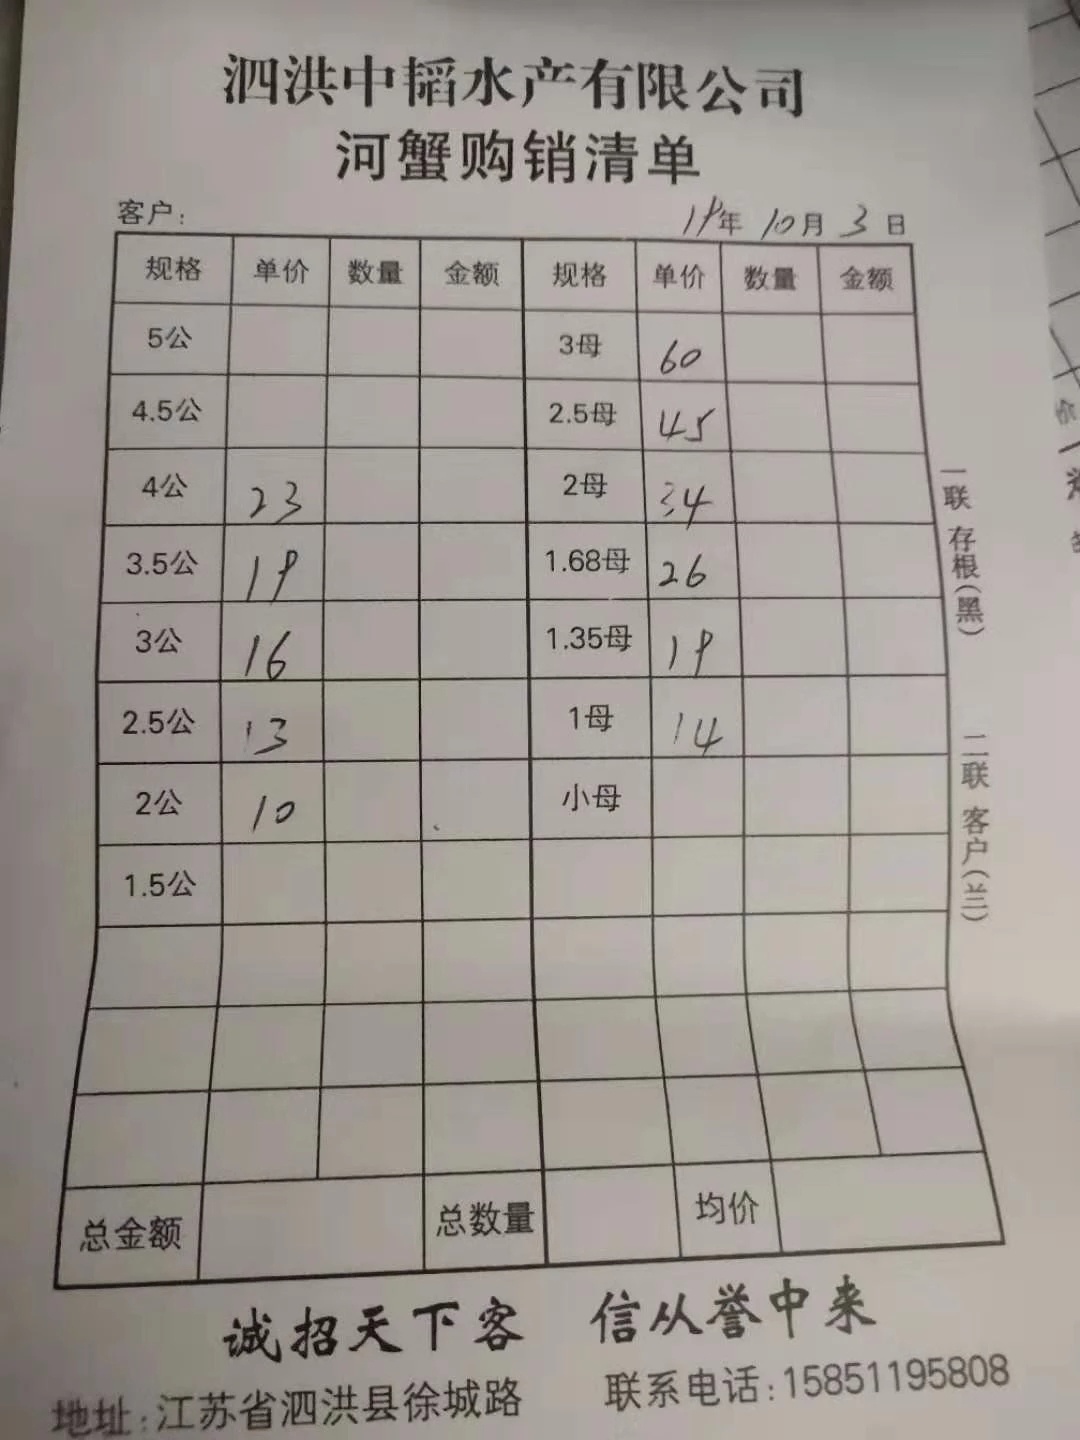 泗洪中韬水产有限公司
河蟹购销清单
客户: 19年 10月 3日
规格 单价 数量 金额 规格 单价 数量 金额
5公 3母 60
4.5公 2.5母 45
4公 23 2母 34
3.5公 19 1.68母 26
3公 16 1.35母 19
2.5公 13 1母 14
2公 10 小母
1.5公
总金额 总数量 均价
一联 存根(黑)
二联 客户(兰)
诚招天下客 信从誉中来
地址:江苏省泗洪县徐城路 联系电话:15851195808